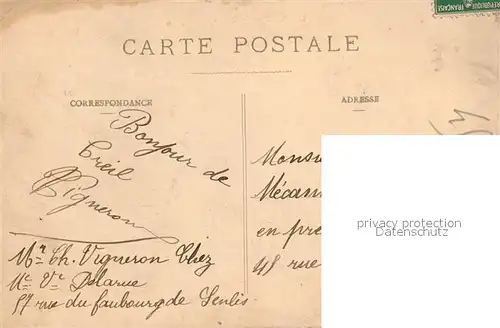 RÉPUBLIQUE FRANÇAISE
CARTE POSTALE
CORRESPONDANCE
ADRESSE
Bonjour de
Creil
Vigneron
Mr Ch. Vigneron Chez
Me Ve Delarue
57 rue du faubourg de Senlis
Monsi
Mécan
en pre
48 rue
privacy protection
Datenschutz